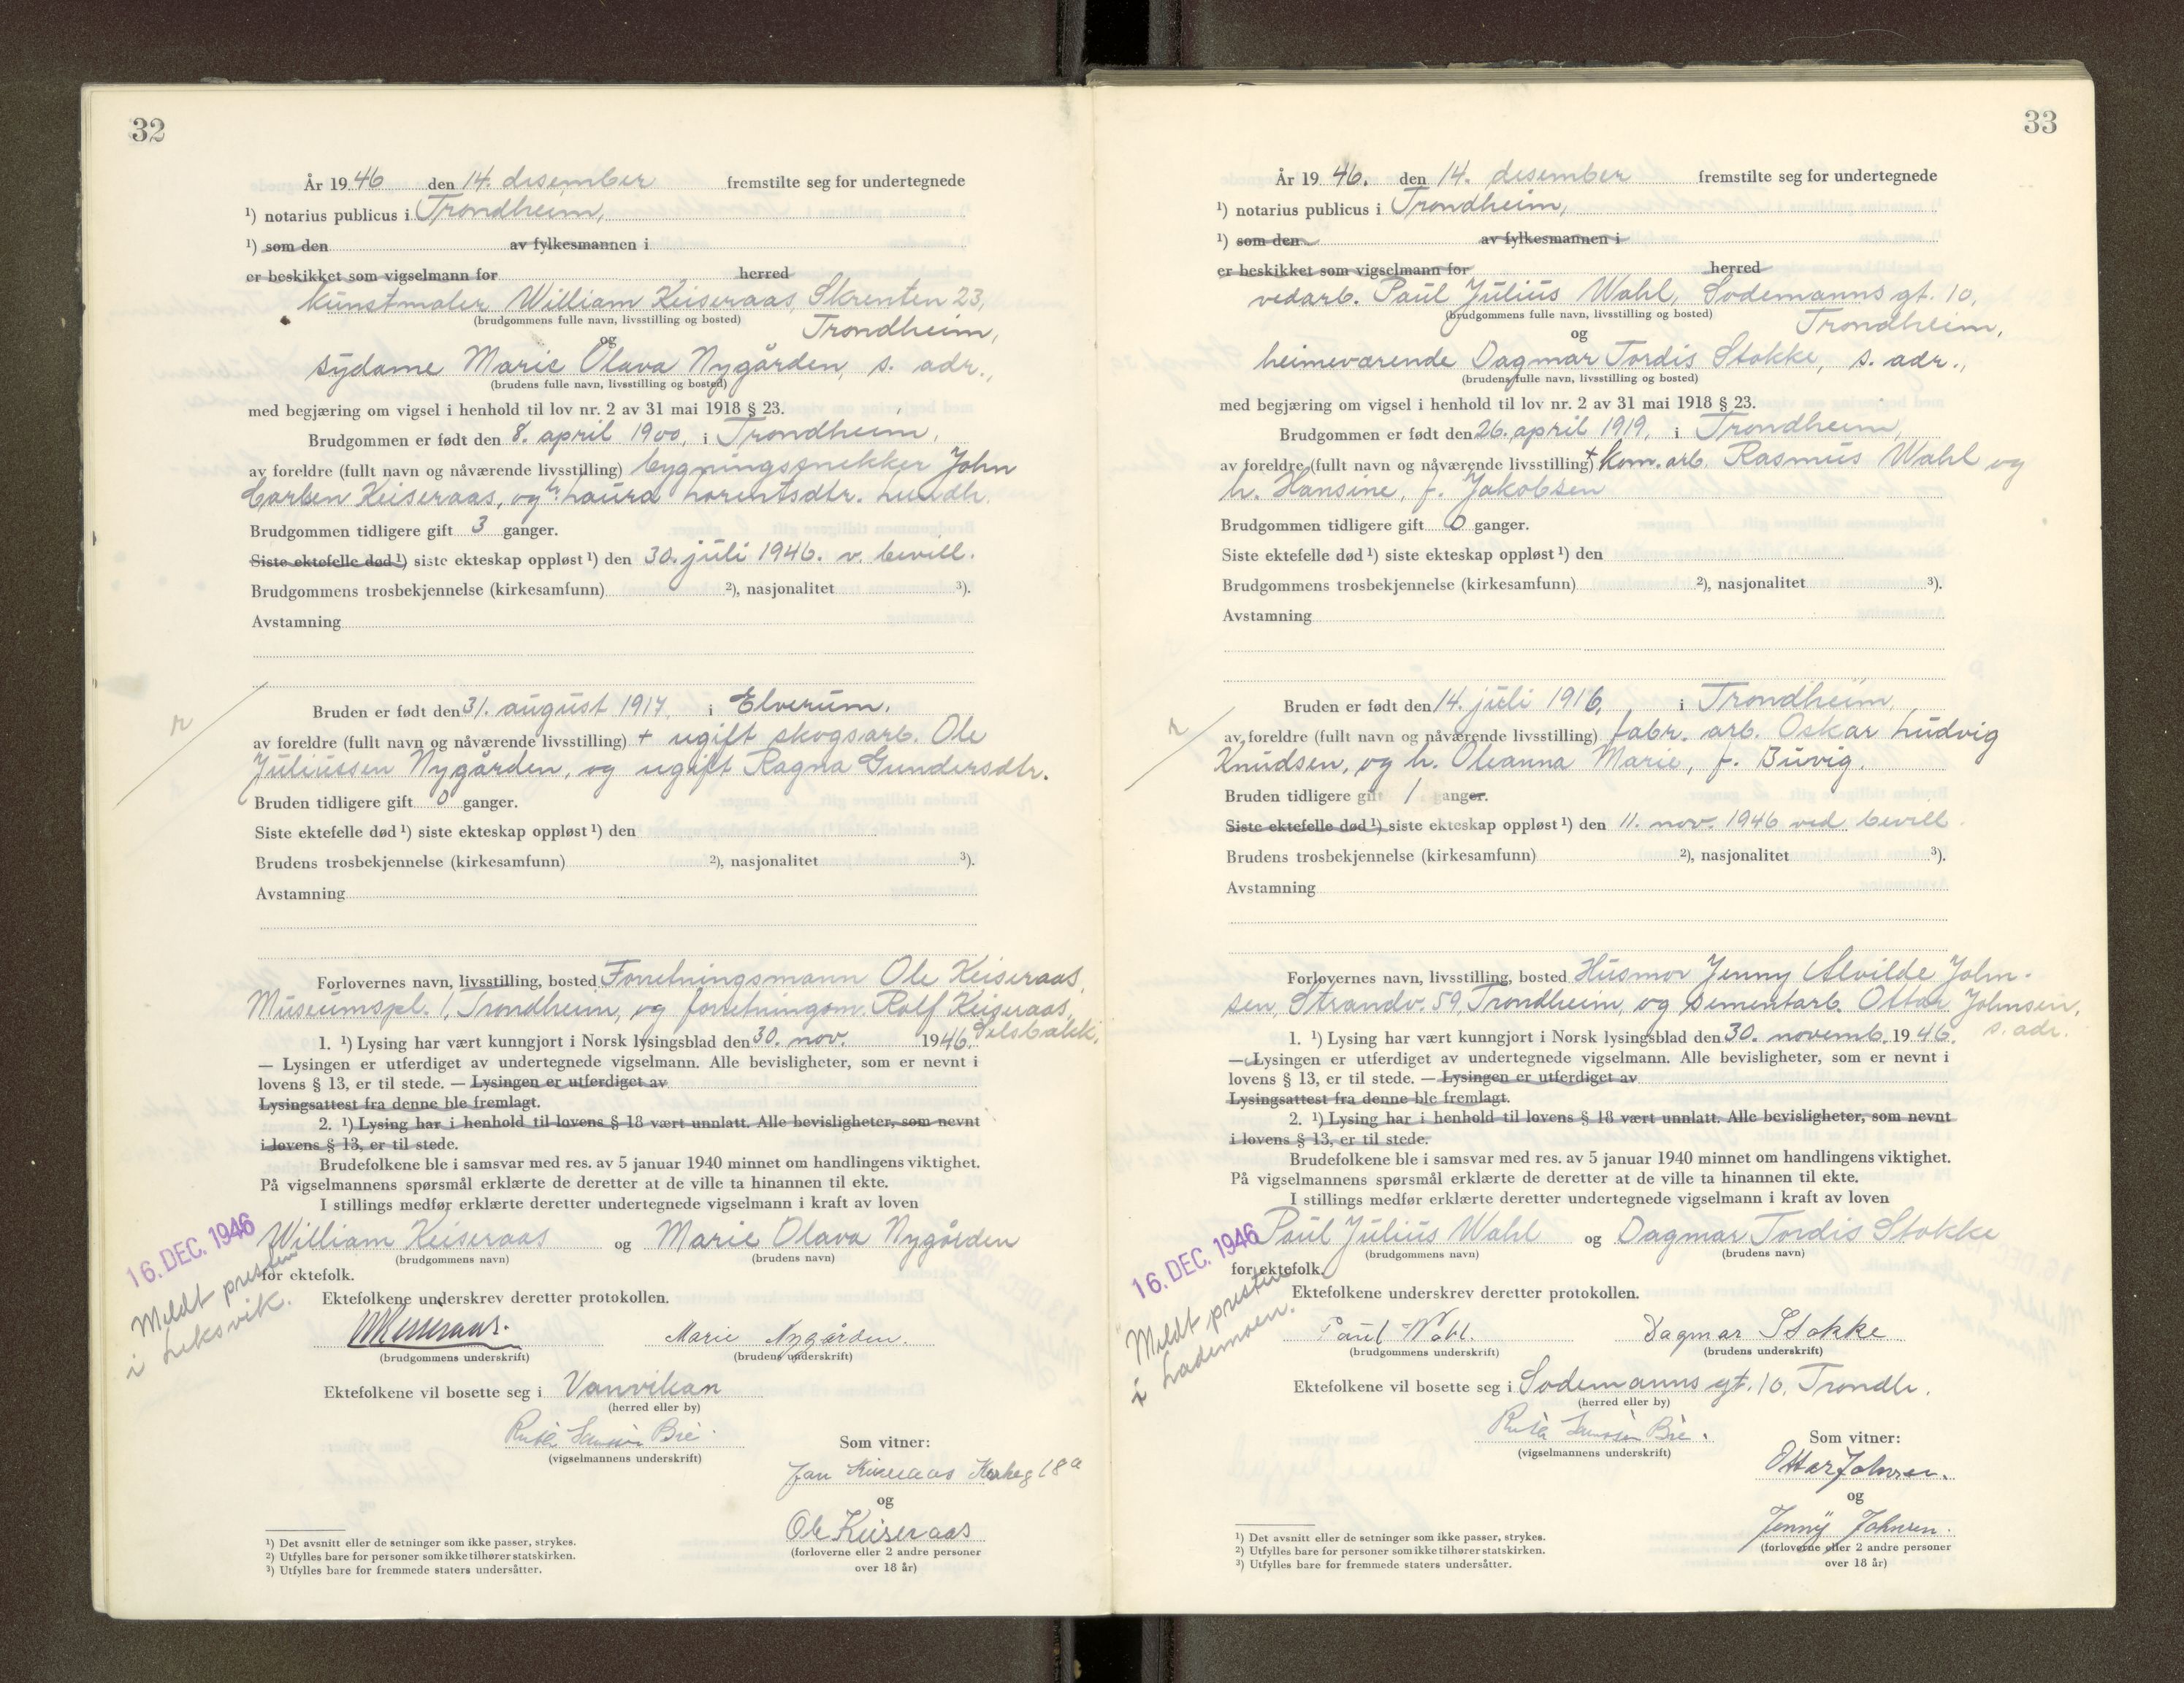 32
År 1946 den 14. desember fremstilte seg for undertegnede
¹) notarius publicus i Trondheim,
¹) som den av fylkesmannen i
er beskikket som vigselmann for herred
kunstmaler William Keiseraas, Skrenten 23,
(brudgommens fulle navn, livsstilling og bosted) Trondheim,
og
sydame Marie Olava Nygården, s. adr.,
(brudens fulle navn, livsstilling og bosted)
med begjæring om vigsel i henhold til lov nr. 2 av 31 mai 1918 § 23.
Brudgommen er født den 8. april 1900, i Trondheim,
av foreldre (fullt navn og nåværende livsstilling) bygningssnekker John
Carben Keiseraas, og h. Laura Lorentsdtr. Lundh.
Brudgommen tidligere gift 3 ganger.
Siste ektefelle død ¹) siste ekteskap oppløst ¹) den 30. juli 1946. v. bevill.
Brudgommens trosbekjennelse (kirkesamfunn) ²), nasjonalitet ³).
Avstamning
Bruden er født den 31. august 1914, i Elverum.
r
av foreldre (fullt navn og nåværende livsstilling) + ugift skogsarb. Ole
Juliussen Nygården, og ugift Ragna Gundersdtr.
Bruden tidligere gift 0 ganger.
Siste ektefelle død ¹) siste ekteskap oppløst ¹) den
Brudens trosbekjennelse (kirkesamfunn) ²), nasjonalitet ³).
Avstamning
Forlovernes navn, livsstilling, bosted Forretningsmann Ole Keiseraas,
Museumspl. 1, Trondheim, og forretningsm. Rolf Keiseraas,
Selsbakk.
1. ¹) Lysing har vært kunngjort i Norsk lysingsblad den 30. nov. 1946.
— Lysingen er utferdiget av undertegnede vigselmann. Alle bevisligheter, som er nevnt i
lovens § 13, er til stede. — Lysingen er utferdiget av
Lysingsattest fra denne ble fremlagt.
2. ¹) Lysing har i henhold til lovens § 18 vært unnlatt. Alle bevisligheter, som nevnt
i lovens § 13, er til stede.
Brudefolkene ble i samsvar med res. av 5 januar 1940 minnet om handlingens viktighet.
På vigselmannens spørsmål erklærte de deretter at de ville ta hinannen til ekte.
I stillings medfør erklærte deretter undertegnede vigselmann i kraft av loven
16. DEC. 1946
William Keiseraas og Marie Olava Nygården
(brudgommens navn) (brudens navn)
for ektefolk.
Meldt presten
i Leksvik.
Ektefolkene underskrev deretter protokollen.
WKeiseraas. Marie Nygården.
(brudgommens underskrift) (brudens underskrift)
Ektefolkene vil bosette seg i Vanvikan
(herred eller by)
Bie.
(vigselmannens underskrift)
Som vitner:
Jan Keiseraas 18a
og
Ole Keiseraas
(forloverne eller 2 andre personer
over 18 år)
¹) Det avsnitt eller de setninger som ikke passer, strykes.
²) Utfylles bare for personer som ikke tilhører statskirken.
³) Utfylles bare for fremmede staters undersåtter.
33
År 1946. den 14. desember fremstilte seg for undertegnede
¹) notarius publicus i Trondheim,
¹) som den av fylkesmannen i
er beskikket som vigselmann for herred
vedarb. Paul Julius Wahl, Sodemanns gt. 10,
(brudgommens fulle navn, livsstilling og bosted) Trondheim,
og
heimeværende Dagmar Tordis Stokke, s. adr.,
(brudens fulle navn, livsstilling og bosted)
med begjæring om vigsel i henhold til lov nr. 2 av 31 mai 1918 § 23.
Brudgommen er født den 26. april 1919, i Trondheim,
av foreldre (fullt navn og nåværende livsstilling) + kom. arb. Rasmus Wahl og
h. Hansine, f. Jakobsen
Brudgommen tidligere gift 0 ganger.
Siste ektefelle død ¹) siste ekteskap oppløst ¹) den
Brudgommens trosbekjennelse (kirkesamfunn) ²), nasjonalitet ³).
Avstamning
Bruden er født den 14. juli 1916, i Trondheim,
r
av foreldre (fullt navn og nåværende livsstilling) fabr. arb. Oskar Ludvig
Knudsen, og h. Oleanna Marie, f. Buvig.
Bruden tidligere gift 1 ganger.
Siste ektefelle død ¹) siste ekteskap oppløst ¹) den 11. nov. 1946 ved bevill.
Brudens trosbekjennelse (kirkesamfunn) ²), nasjonalitet ³).
Avstamning
Forlovernes navn, livsstilling, bosted Husmor Jenny Alvilde John-
sen, Strandv. 59, Trondheim, og sementarb. Ottar Johnsen,
s. adr.
1. ¹) Lysing har vært kunngjort i Norsk lysingsblad den 30. novemb. 1946.
— Lysingen er utferdiget av undertegnede vigselmann. Alle bevisligheter, som er nevnt i
lovens § 13, er til stede. — Lysingen er utferdiget av
Lysingsattest fra denne ble fremlagt.
2. ¹) Lysing har i henhold til lovens § 18 vært unnlatt. Alle bevisligheter, som nevnt
i lovens § 13, er til stede.
Brudefolkene ble i samsvar med res. av 5 januar 1940 minnet om handlingens viktighet.
På vigselmannens spørsmål erklærte de deretter at de ville ta hinannen til ekte.
I stillings medfør erklærte deretter undertegnede vigselmann i kraft av loven
16. DEC. 1946
Paul Julius Wahl og Dagmar Tordis Stokke
(brudgommens navn) (brudens navn)
for ektefolk.
Meldt presten
i Lademoen.
Ektefolkene underskrev deretter protokollen.
Paul Wahl. Dagmar Stokke
(brudgommens underskrift) (brudens underskrift)
Ektefolkene vil bosette seg i Sodemanns gt. 10, Trondh.
(herred eller by)
Bie.
(vigselmannens underskrift)
Som vitner:
Ottar Johnsen.
og
Jenny Johnsen.
(forloverne eller 2 andre personer
over 18 år)
¹) Det avsnitt eller de setninger som ikke passer, strykes.
²) Utfylles bare for personer som ikke tilhører statskirken.
³) Utfylles bare for fremmede staters undersåtter.